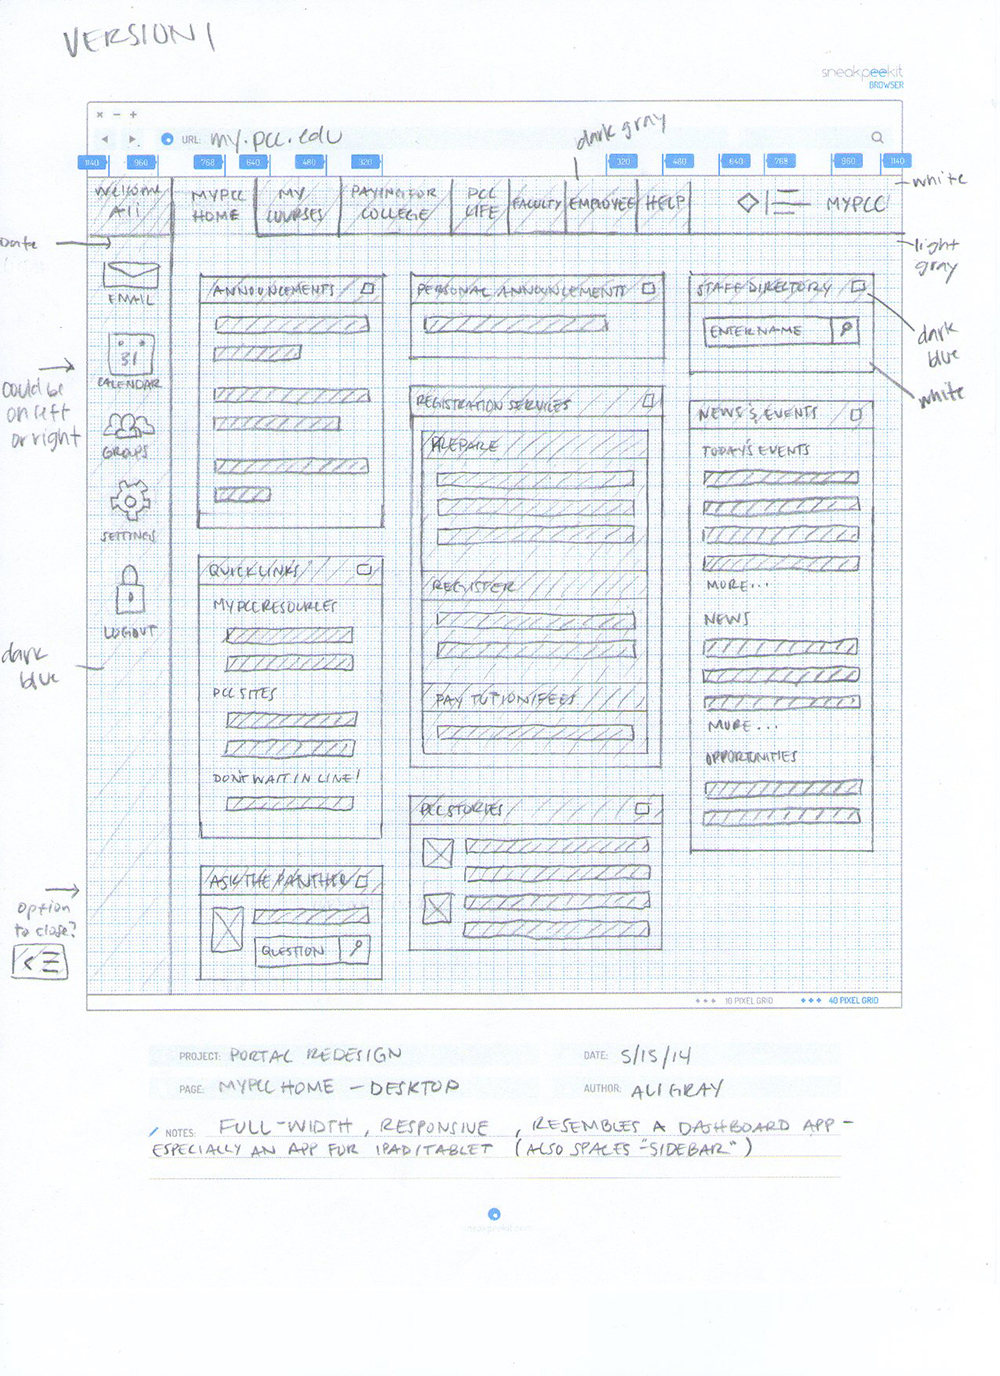 VERSION 1
sneakpeekit
BROWSER
× − +
URL: my.pcc.edu
dark gray
1140 960 768 640 480 320 320 480 640 768 960 1140
white
Welcome
Ali
MYPCC
HOME
MY
COURSES
PAYING FOR
COLLEGE
PCC
LIFE
FACULTY
EMPLOYEE
HELP
MYPCC
light
gray
EMAIL
31
CALENDAR
GROUPS
SETTINGS
LOGOUT
could be
on left
or right
dark
blue
option
to close?
ANNOUNCEMENTS
QUICKLINKS
MYPCC RESOURCES
PCC SITES
DON'T WAIT IN LINE!
ASK THE PANTHER
QUESTION
PERSONAL ANNOUNCEMENTS
REGISTRATION SERVICES
PREPARE
REGISTER
PAY TUTION/FEES
PCC STORIES
STAFF DIRECTORY
ENTER NAME
dark
blue
white
NEWS & EVENTS
TODAY'S EVENTS
MORE...
NEWS
MORE...
OPPORTUNITIES
10 PIXEL GRID 40 PIXEL GRID
PROJECT: PORTAL REDESIGN
DATE: 5/15/14
PAGE: MYPCC HOME - DESKTOP
AUTHOR: ALI GRAY
NOTES: FULL-WIDTH, RESPONSIVE, RESEMBLES A DASHBOARD APP -
ESPECIALLY AN APP FOR IPAD/TABLET (ALSO SPACES "SIDEBAR")